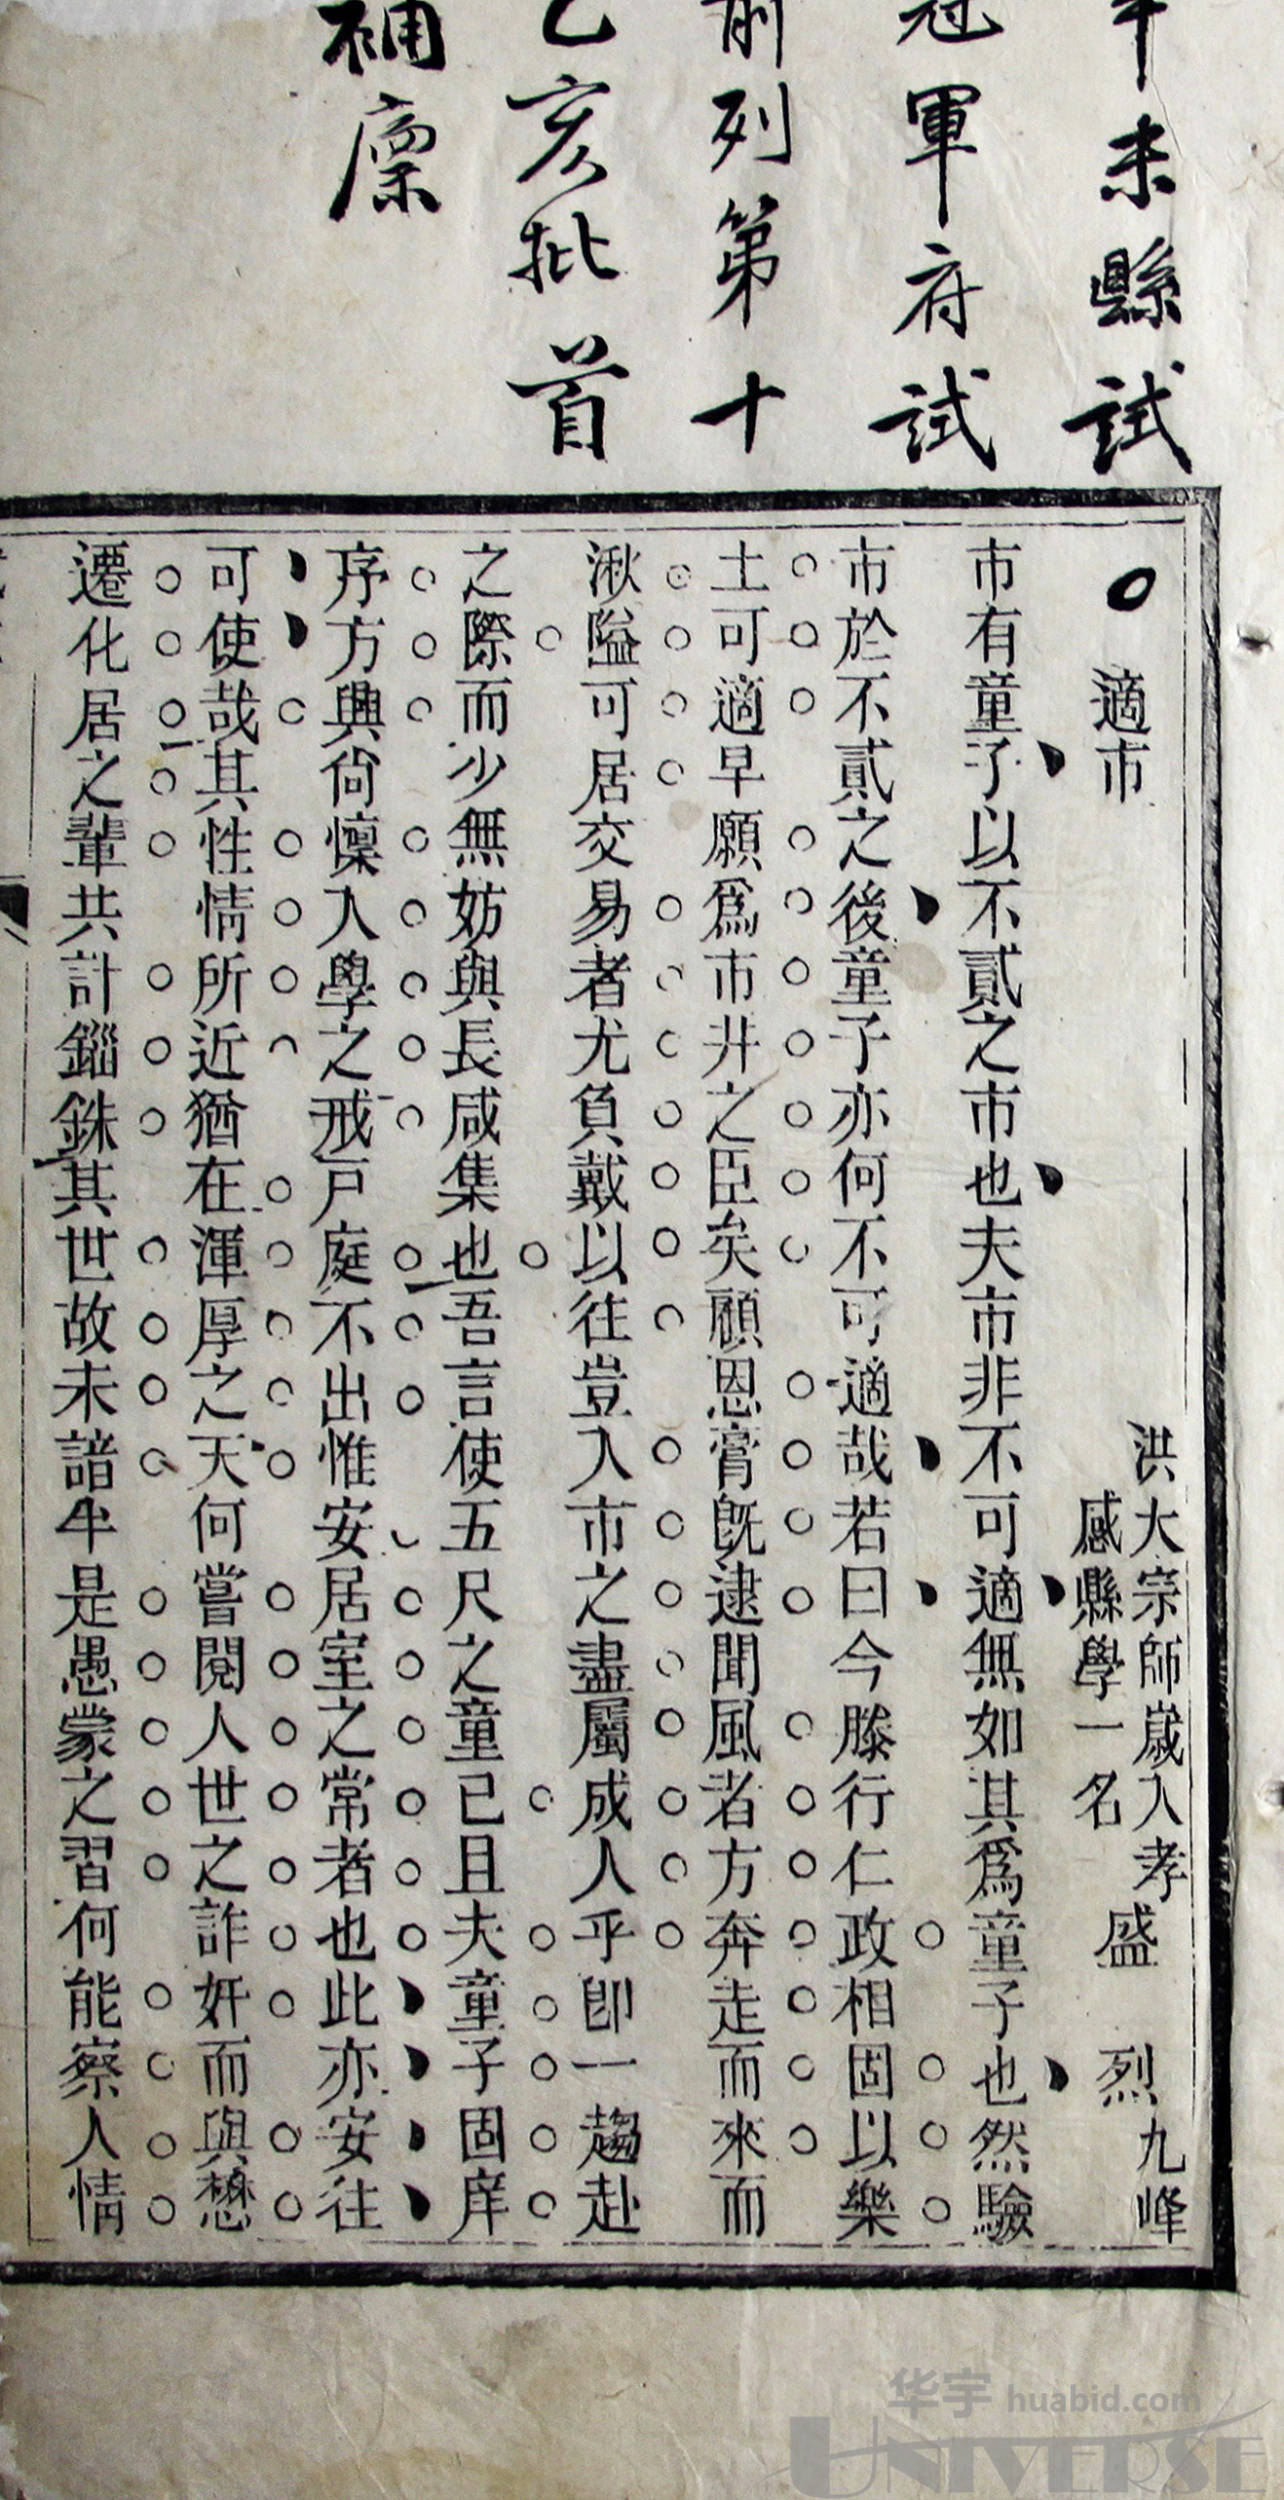 未縣試
冠軍府試
前列第十
乙亥批首
補廩
適市
洪大宗師歲入孝
感縣學一名
盛烈
九峰
市有童子以不貳之市也夫市非不可適無如其爲童子也然驗
市於不貳之後童子亦何不可適哉若曰今滕行仁政相固以樂
土可適早願爲市井之臣矣顧恩膏旣逮聞風者方奔走而來而
湫隘可居交易者尤負戴以往豈入市之盡屬成人乎卽一趨赴
之際而少無妨與長咸集也吾言使五尺之童已且夫童子固庠
序方興尙懍入學之戒戶庭不出惟安居室之常者也此亦安往
可使哉其性情所近猶在渾厚之天何嘗閱人世之詐奸而與懋
遷化居之輩共計錙銖其世故未諳半是愚蒙之習何能察人情
华宇 huabid.com
UNIVERSE